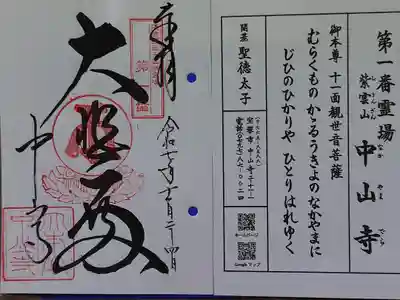 第一番霊場
紫雲山 中山寺
しうんざん なかやまでら
御本尊 十一面観世音菩薩
むらくもの かゝるうきよのなかやまに
じひのひかりや ひとりはれゆく
開基 聖徳太子
宝塚市中山寺二ー十一ー一
電話(〇七九七)八七ー〇〇二四
ホームページ
Google マップ
奉拝
大悲殿
中山寺